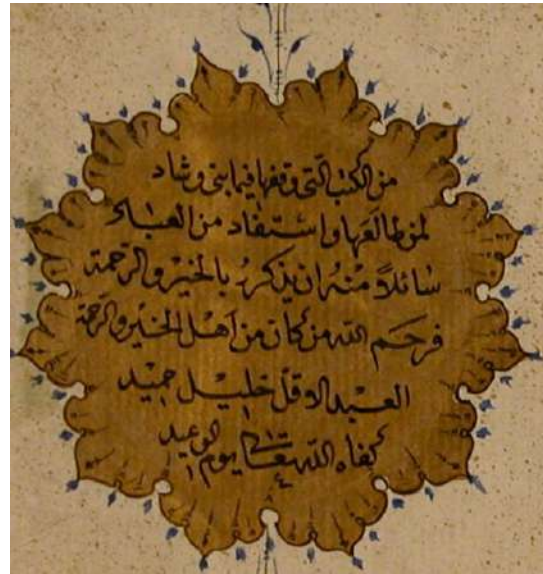 من الكتب التى وقفها فيما بنى وشاد
لمن طالعها واستفاد من العباد
سائلاً منه ان يذكره بالخير والرحمة
فرحم الله من كان من اهل الخير والرحمة
العبد الاقل خليل حميد
كفاه الله تعالى يوم الوعيد